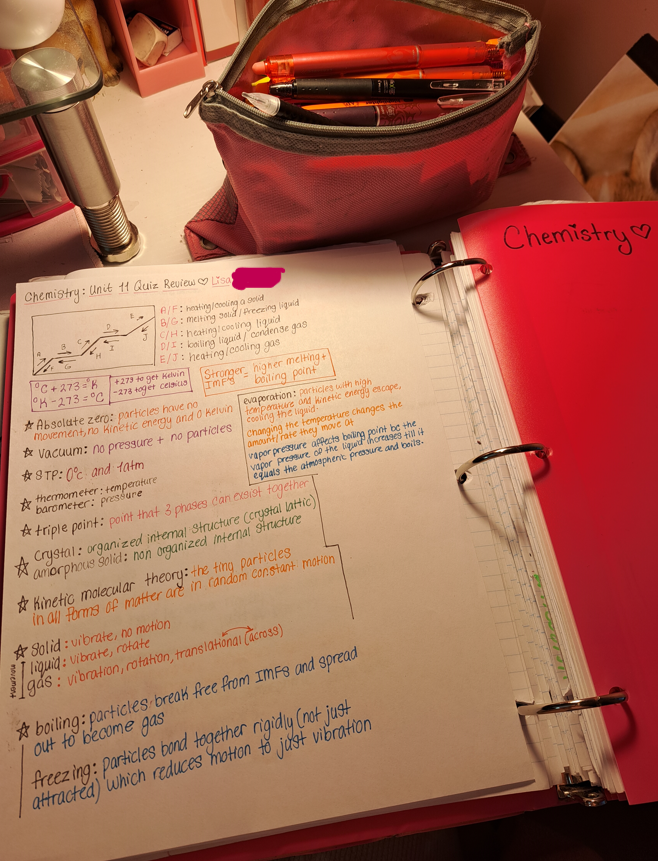 Chemistry ♡
Chemistry: Unit 11 Quiz Review ♡ Lisa
A/F: heating/cooling a solid
B/G: melting solid/freezing liquid
C/H: heating/cooling liquid
D/I: boiling liquid/condense gas
E/J: heating/cooling gas
A
F
B
G
C
H
D
I
E
J
°C + 273 = °K
°K - 273 = °C
+273 to get Kelvin
-273 to get celsius
Stronger = higher melting +
IMFs boiling point
☆ Absolute zero: particles have no
movement, no kinetic energy and 0 Kelvin
☆ Vacuum: no pressure + no particles
☆ STP: 0°C and 1atm
☆ thermometer: temperature
barometer: pressure
☆ triple point: point that 3 phases can exsist together
☆ Crystal: organized internal structure (crystal lattic)
amorphous solid: non organized internal structure
☆ Kinetic molecular theory: the tiny particles
in all forms of matter are in random constant motion
evaporation: particles with high
temperature and kinetic energy escape,
cooling the liquid.
changing the temperature changes the
amount/rate they move at
vapor pressure affects boiling point bc the
vapor pressure of the liquid increases till it
equals the atmospheric pressure and boils.
☆ solid: vibrate, no motion
liquid: vibrate, rotate
gas: vibration, rotation, translational (across)
motion
☆ boiling: particles break free from IMFs and spread
out to become gas
freezing: particles bond together rigidly (not just
attracted) which reduces motion to just vibration